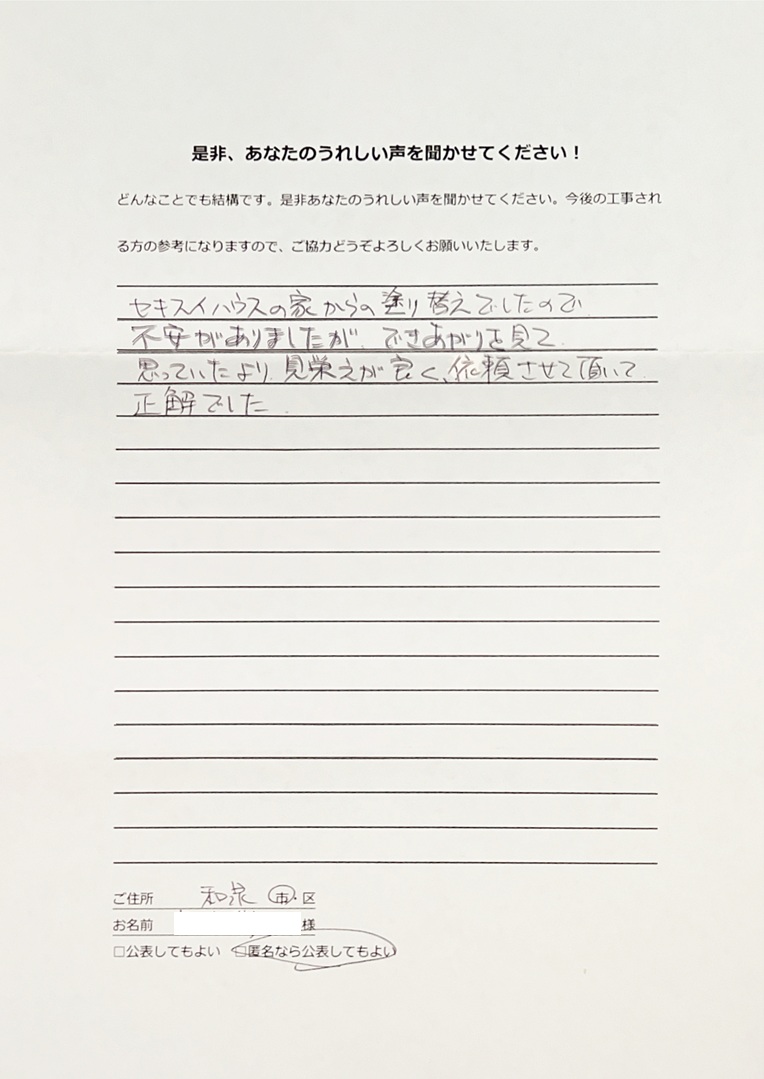 是非、あなたのうれしい声を聞かせてください！
どんなことでも結構です。是非あなたのうれしい声を聞かせてください。今後の工事され
る方の参考になりますので、ご協力どうぞよろしくお願いいたします。
セキスイハウスの家からの塗り替えでしたので
不安がありましたが、できあがりを見て
思っていたより、見栄えが良く、依頼させて頂いて
正解でした。
ご住所 和泉 市・区
お名前 様
□公表してもよい □匿名なら公表してもよい